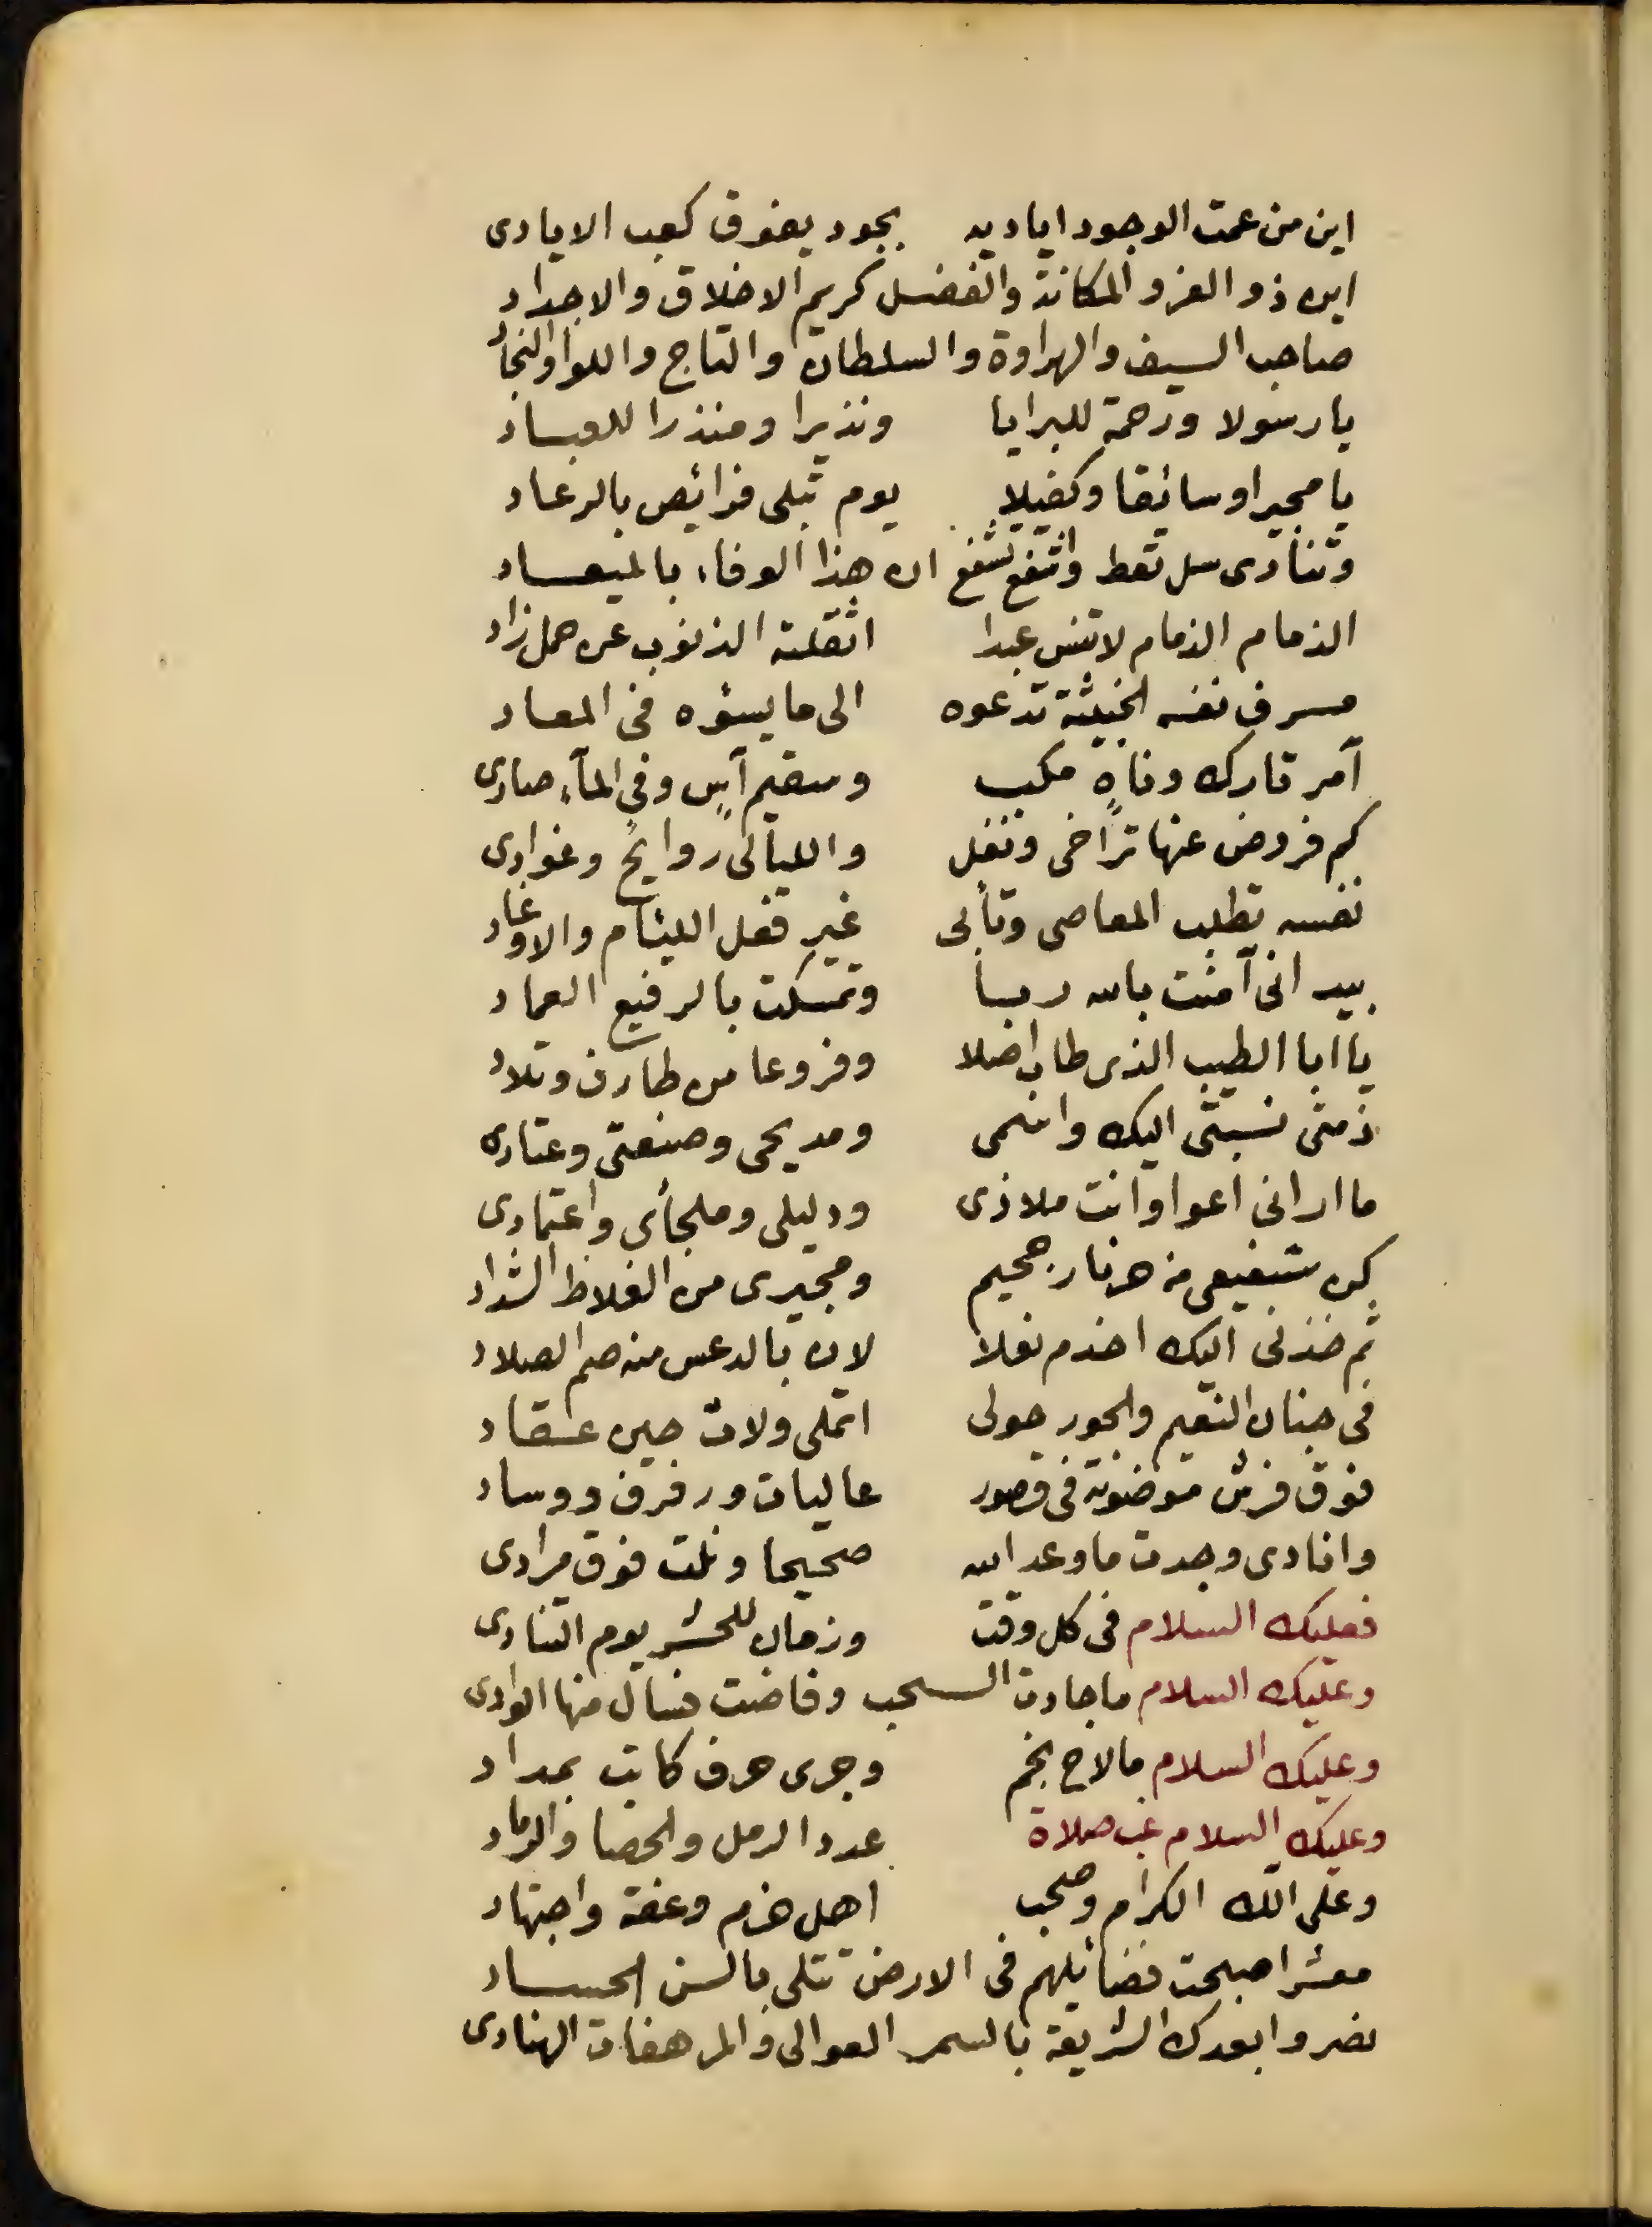 اين من عمت الوجود اياديه بجود يفوق كعب الايادى
اين ذو العز والمكانة والفضل كريم الاخلاق والاجداد
صاحب السيف والهراوة والسلطان والتاج واللوا والنجاد
يا رسولا ورحمة للبرايا ونذيرا ومنذرا للعباد
يا مجيرا وسائقا وكفيلا يوم تبلى فرائص بالرعاد
وتنادى سل تعط واشفع تشفع ان هذا الوفاء بالميعاد
الذمام الذمام لا تنس عبدا اثقلته الذنوب عن حمل زاد
مسرف نفسه الخبيثة تدعوه الى ما يسؤه فى المعاد
آمر تارك وناهٍ مكب وسقيم آسٍ وفى المآء صادى
كم فروض عنها تراخى ونفل والليالى روايح وغوادى
نفسه تطلب المعاصى وتأبى غير فعل الليئام والاوغاد
بيد انى آمنت بالله ربا وتمسكت بالرفيع العماد
يا ابا الطيب الذى طاب اصلا وفروعا من طارف وتلاد
ذمتى نسبتى اليك واسمى ومديحى وصنعتى وعتادى
ما ارانى اعوا وانت ملاذى ودليلى وملجأى واعتمادى
كن شفيعى من حر نار جحيم ومجيرى من الغلاظ الشداد
ثم خذنى اليك اخدم نعلا لان بالدعس منه صم الصلاد
فى جنان النعيم والحور حولى اتملى ولات حين عـقاد
فوق فرش موضونة فى قصور عاليات ورفرف ووساد
وانادى وجدت ما وعد الله صحيحا ونلت فوق مرادى
فعليك السلام فى كل وقت وزمان للحشر يوم التنادى
وعليك السلام ما جادت السحب وفاضت فسال منها الوادى
وعليك السلام ما لاح نجم وجرى حرف كاتب بمداد
وعليك السلام غب صلاة عدد الرمل والحصا والرماد
وعلى الك الكرام وصحب اهل حزم وعفة واجتهاد
معشر اصبحت فضائلهم فى الارض تتلى بالسن الحساد
نصروا بعدك الشريعة بالسمر العوالى والمرهفات الهنادى